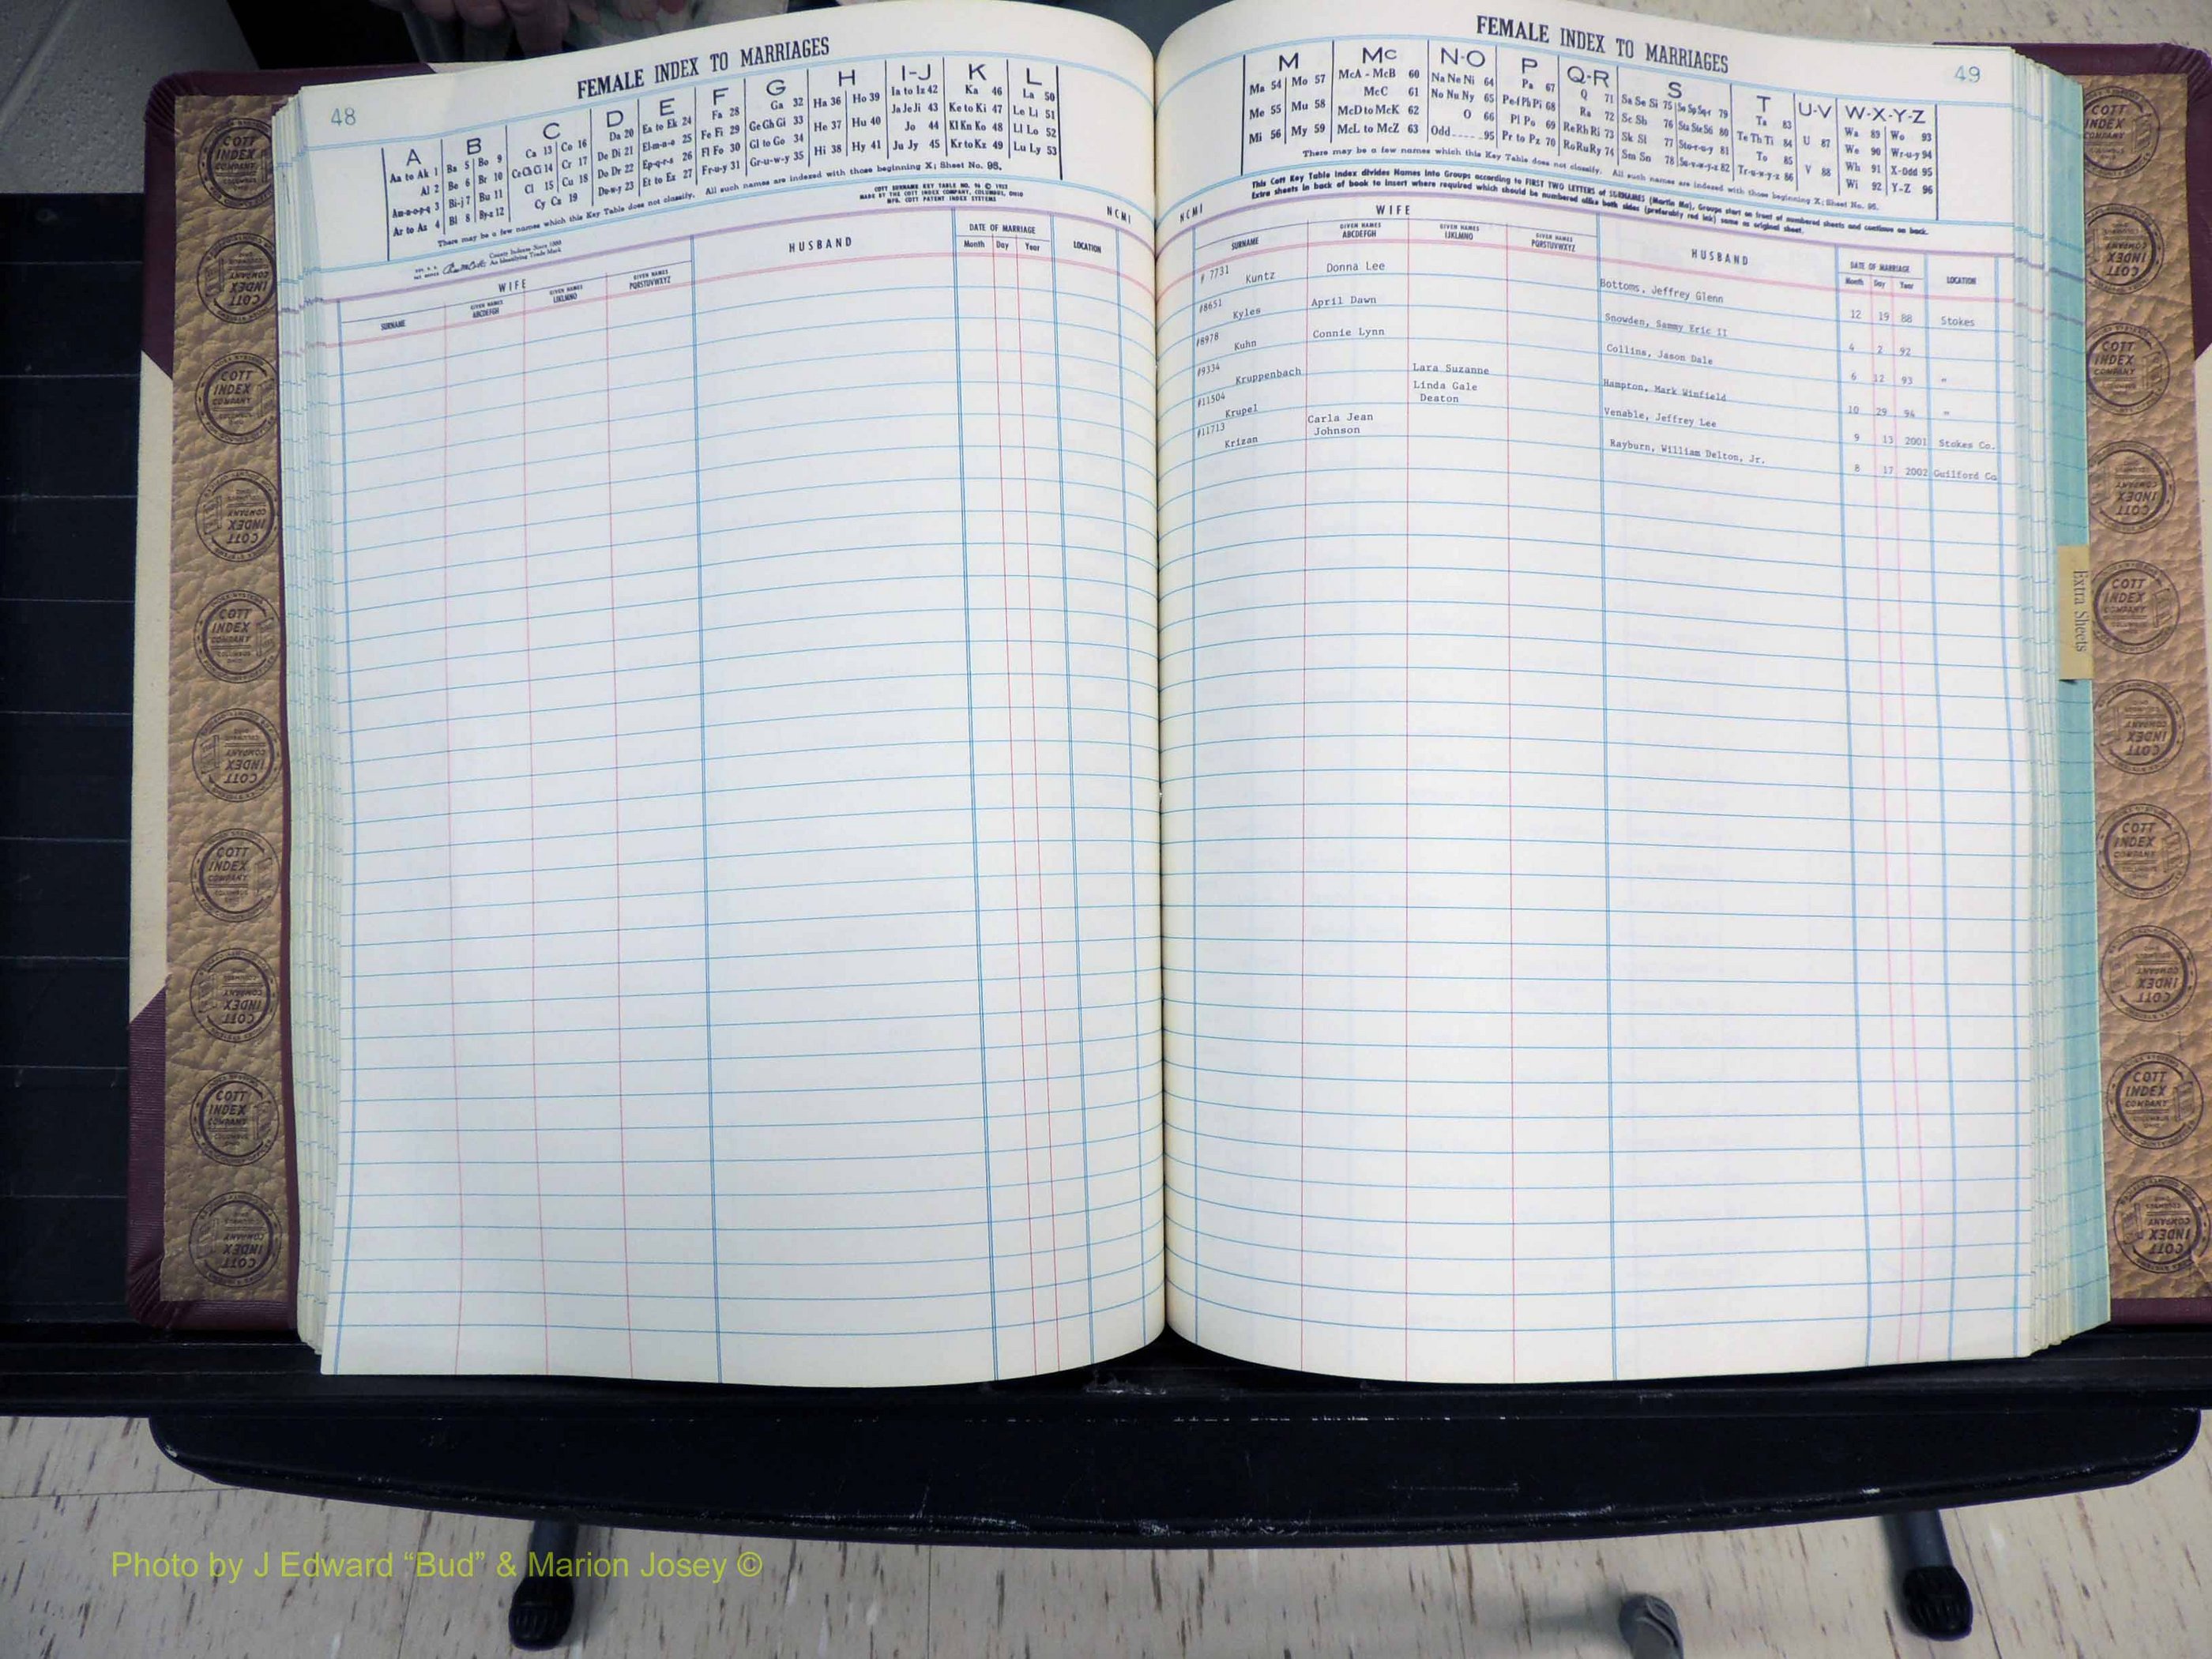 48
FEMALE INDEX TO MARRIAGES
A
Aa to Ak 1
Al 2
Am-n-o-p-q 3
Ar to Az 4
B
Ba 5 Bo 9
Be 6 Br 10
Bi-j 7 Bu 11
Bl 8 By-z 12
C
Ca 13 Co 16
Ce Ch Ci 14 Cr 17
Cl 15 Cu 18
Cy Cz 19
D
Da 20
De Di 21
Do Dr 22
Du-w-y 23
E
Ea to Ek 24
El-m-n-o 25
Ep-q-r-s 26
Et to Ez 27
F
Fa 28
Fe Fi 29
Fl Fo 30
Fr-u-y 31
G
Ga 32
Ge Gh Gi 33
Gl to Go 34
Gr-u-w-y 35
H
Ha 36 Ho 39
He 37 Hu 40
Hi 38 Hy 41
I-J
Ia to Iz 42
Ja Je Ji 43
Jo 44
Ju Jy 45
K
Ka 46
Ke to Ki 47
Kl Kn Ko 48
Kr to Kz 49
L
La 50
Le Li 51
Ll Lo 52
Lu Ly 53
There may be a few names which this Key Table does not classify. All such names are indexed with those beginning X; Sheet No. 96.
COTT SURNAME KEY TABLE NO. 96 © 1952
MADE BY THE COTT INDEX COMPANY, COLUMBUS, OHIO
MFG. COTT PATENT INDEX SYSTEMS
County Indexes Since 1888
An Identifying Trade Mark
NCMI
WIFE
SURNAME
GIVEN NAMES
ABCDEFGH
GIVEN NAMES
IJKLMNO
GIVEN NAMES
PQRSTUVWXYZ
HUSBAND
DATE OF MARRIAGE
Month Day Year
LOCATION
FEMALE INDEX TO MARRIAGES
49
M
Ma 54 Mo 57
Me 55 Mu 58
Mi 56 My 59
Mc
McA - McB 60
McC 61
McD to McK 62
McL to McZ 63
N-O
Na Ne Ni 64
No Nu Ny 65
O 66
Odd 95
P
Pa 67
Pe-f Ph Pi 68
Pl Po 69
Pr to Pz 70
Q-R
Q 71
Ra 72
Re Rh Ri 73
Ro Ru Ry 74
S
Sa Se Si 75
Sc Sh 76 Sta Ste Sti 80
Sk Sl 77 Sto-r-u-y 81
Sm Sn 78 Su-v-w-y-z 82
T
Ta 83
Te Th Ti 84
To 85
Tr-u-w-y-z 86
U-V
U 87
V 88
W-X-Y-Z
Wa 89 Wo 93
We 90 Wr-u-y 94
Wh 91 X-Odd 95
Wi 92 Y-Z 96
There may be a few names which this Key Table does not classify. All such names are indexed with those beginning X; Sheet No. 96.
This Cott Key Table Index divides Names into Groups according to FIRST TWO LETTERS of SURNAMES (Martin Ma), Groups start on front of numbered sheets and continue on back.
Extra sheets in back of book to insert where required which should be numbered alike both sides (preferably red ink) same as original sheet.
NCMI
WIFE
SURNAME
GIVEN NAMES
ABCDEFGH
GIVEN NAMES
IJKLMNO
GIVEN NAMES
PQRSTUVWXYZ
HUSBAND
DATE OF MARRIAGE
Month Day Year
LOCATION
# 7731 Kuntz Donna Lee Bottoms, Jeffrey Glenn 12 19 88 Stokes
#8651 Kyles April Dawn Snowden, Sammy Eric II 4 2 92
#8978 Kuhn Connie Lynn Collins, Jason Dale 6 12 93 "
#9334 Kruppenbach Lara Suzanne Hampton, Mark Winfield 10 29 94 "
#11504 Krupel Linda Gale Deaton Venable, Jeffrey Lee 9 13 2001 Stokes Co.
#11713 Krizan Carla Jean Johnson Rayburn, William Delton, Jr. 8 17 2002 Guilford Co
Extra Sheets
COTT INDEX COMPANY
Photo by J Edward “Bud” & Marion Josey ©